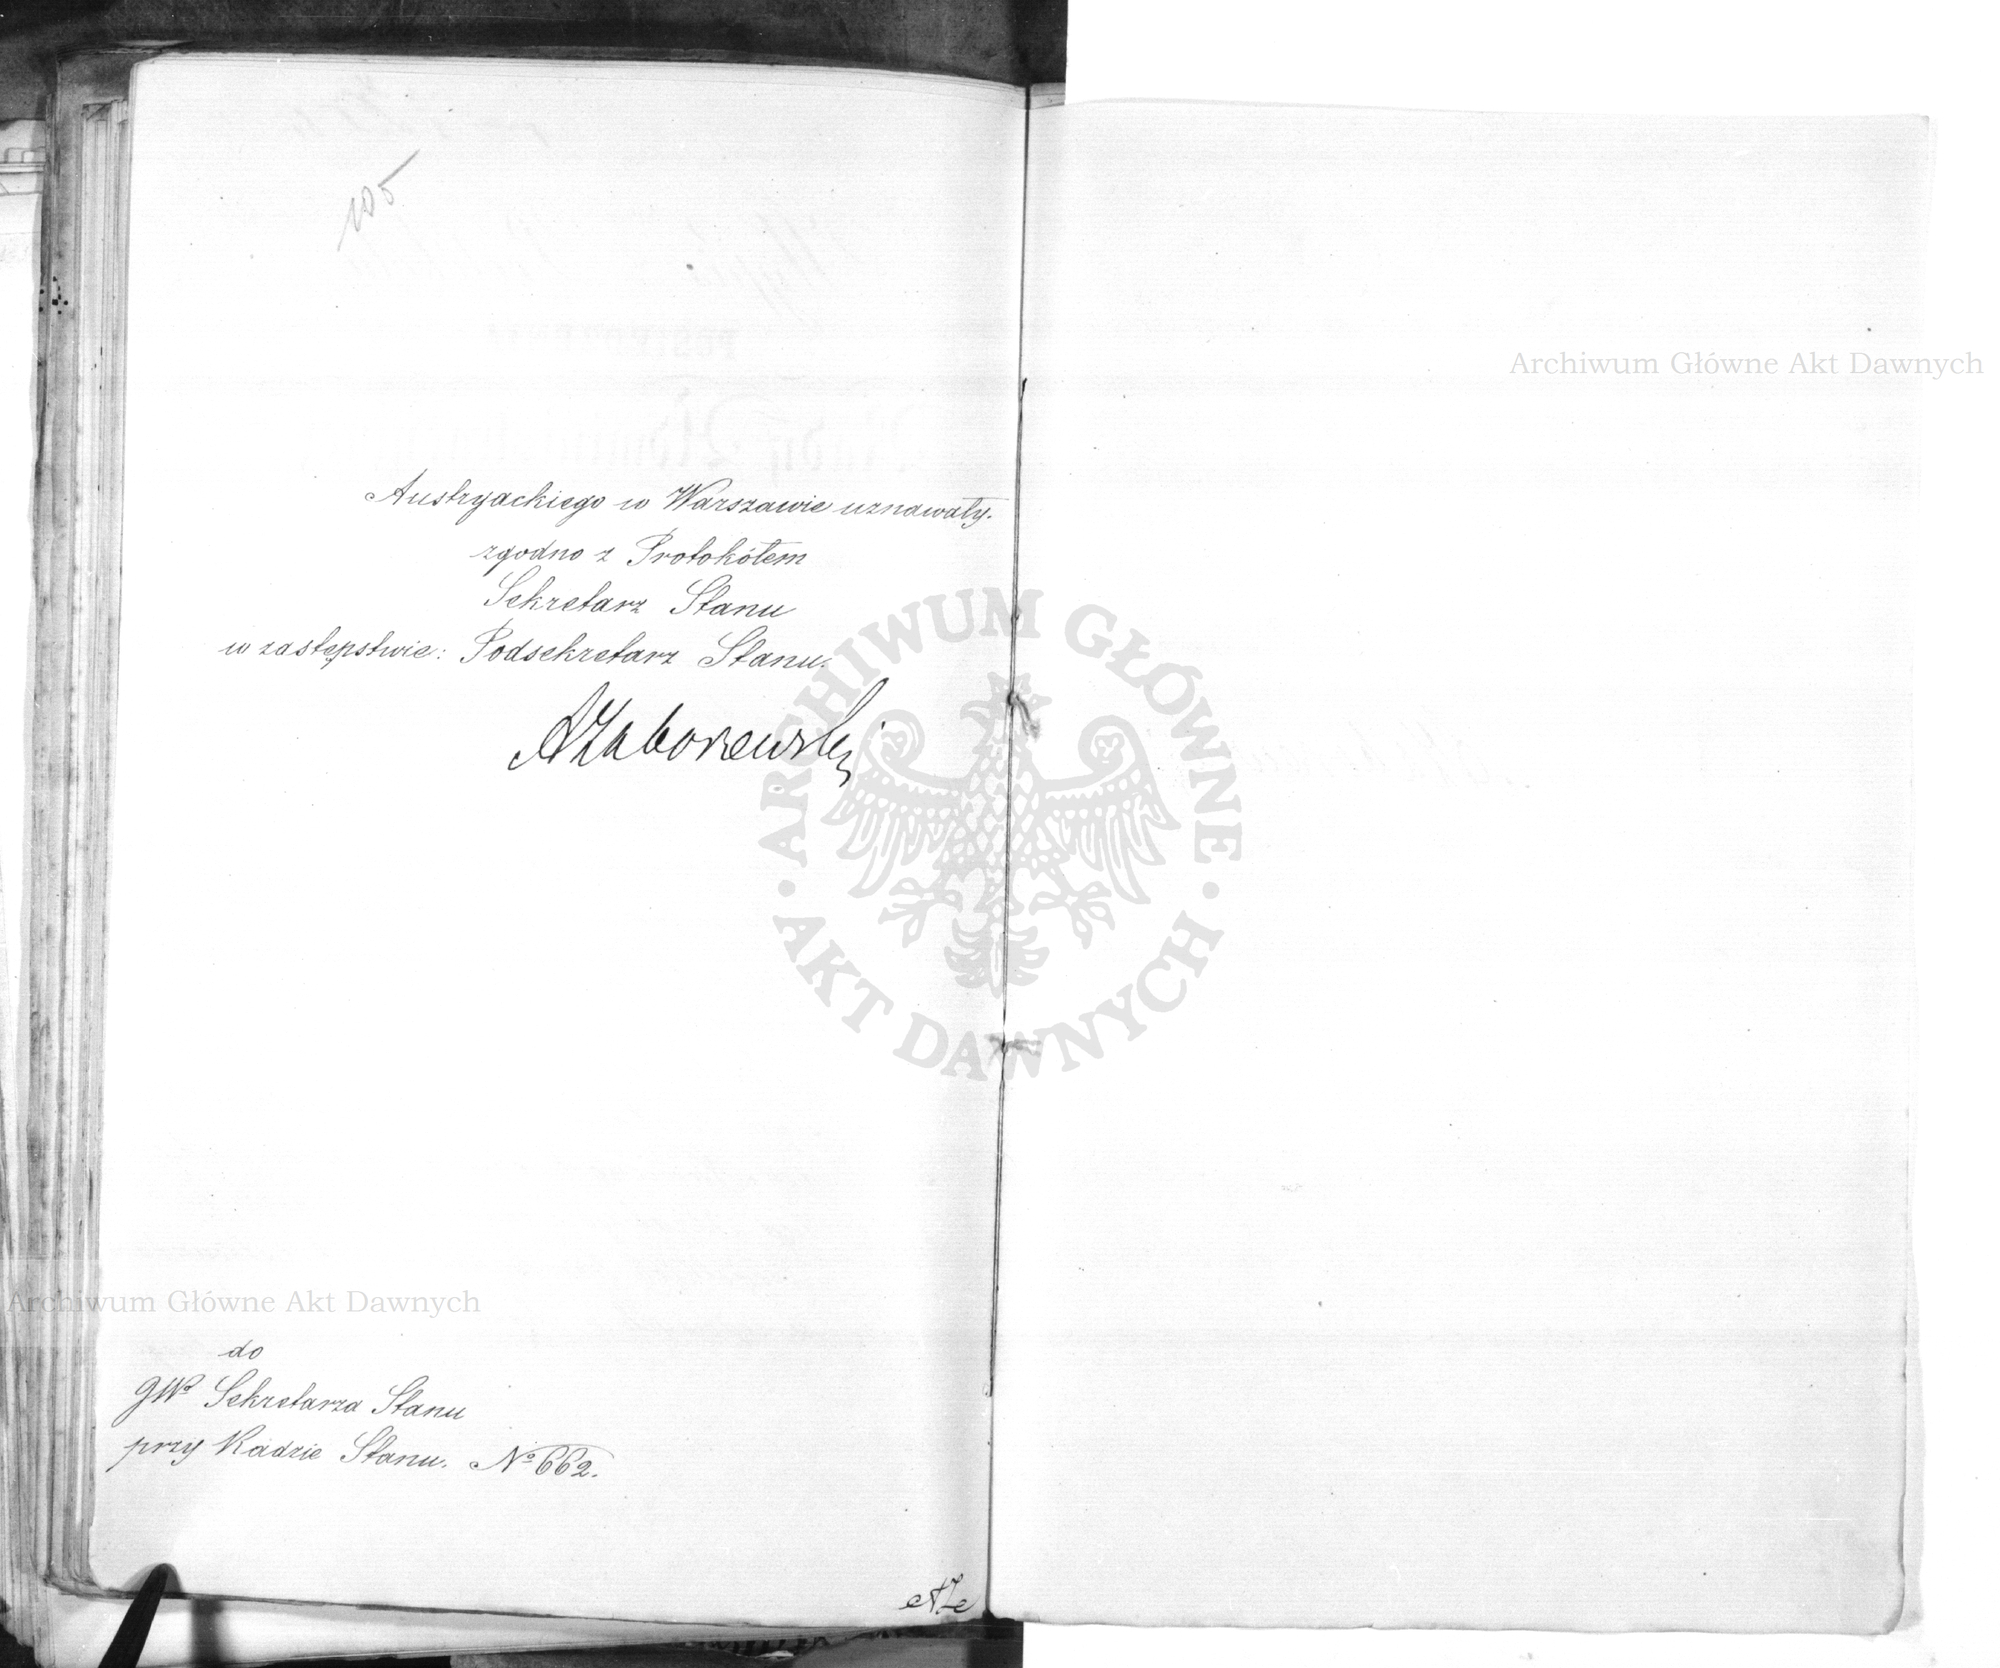 105
Austryackiego w Warszawie uznawały.
zgodno z Protokółem
Sekretarz Stanu
w zastępstwie: Podsekretarz Stanu.
AZaborowski
do
JWP Sekretarza Stanu
przy Radzie Stanu. No 662.
ARCHIWUM GŁÓWNE AKT DAWNYCH
Archiwum Główne Akt Dawnych
Archiwum Główne Akt Dawnych